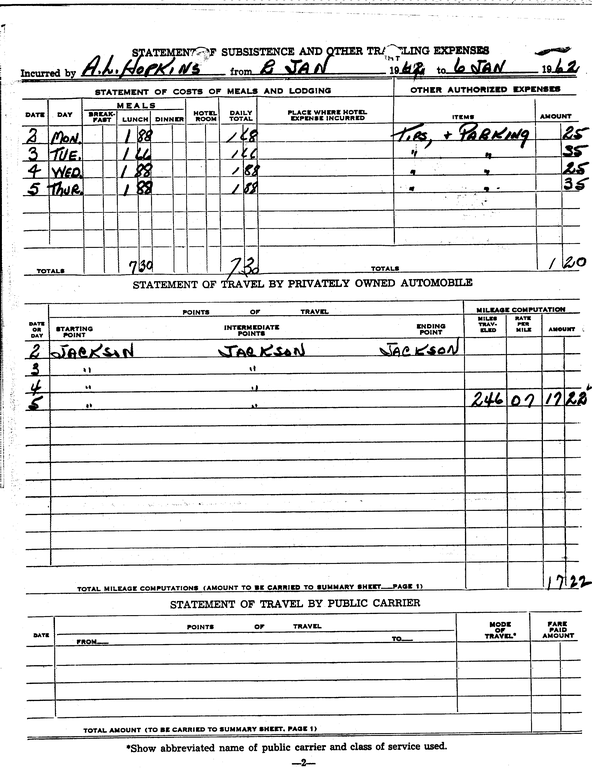 STATEMENT OF SUBSISTENCE AND OTHER TRAVELING EXPENSES
Incurred by A.L. HOPKINS from 2 JAN 1962 to 6 JAN 1962
STATEMENT OF COSTS OF MEALS AND LODGING OTHER AUTHORIZED EXPENSES
DATE DAY MEALS BREAK-FAST LUNCH DINNER HOTEL ROOM DAILY TOTAL PLACE WHERE HOTEL EXPENSE INCURRED ITEMS AMOUNT
2 MON. 1 88 1 68 TIPS, + PARKING 25
3 TUE. 1 66 1 66 " " 35
4 WED. 1 88 1 88 " " 25
5 THUR. 1 88 1 88 " " 35
TOTALS 7 30 7 30 TOTALS 1 20
STATEMENT OF TRAVEL BY PRIVATELY OWNED AUTOMOBILE
POINTS OF TRAVEL MILEAGE COMPUTATION
DATE OR DAY STARTING POINT INTERMEDIATE POINTS ENDING POINT MILES TRAV-ELED RATE PER MILE AMOUNT
2 JACKSON JACKSON JACKSON
3 " "
4 " "
5 " " 246 07 17 22
TOTAL MILEAGE COMPUTATIONS (AMOUNT TO BE CARRIED TO SUMMARY SHEET PAGE 1) 17 22
STATEMENT OF TRAVEL BY PUBLIC CARRIER
DATE POINTS OF TRAVEL MODE OF TRAVEL* FARE PAID AMOUNT
FROM TO
TOTAL AMOUNT (TO BE CARRIED TO SUMMARY SHEET, PAGE 1)
*Show abbreviated name of public carrier and class of service used.
—2—